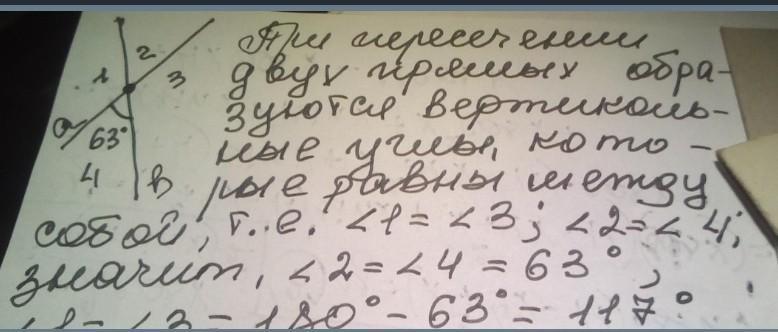 1 2 3
a 63°
4 b
При пересечении
двух прямых обра-
зуются вертикаль-
ные углы, кото-
рые равны между
собой, т.е. <1 = <3; <2 = <4;
значит, <2 = <4 = 63°;
<1 = <3 = 180° - 63° = 117°